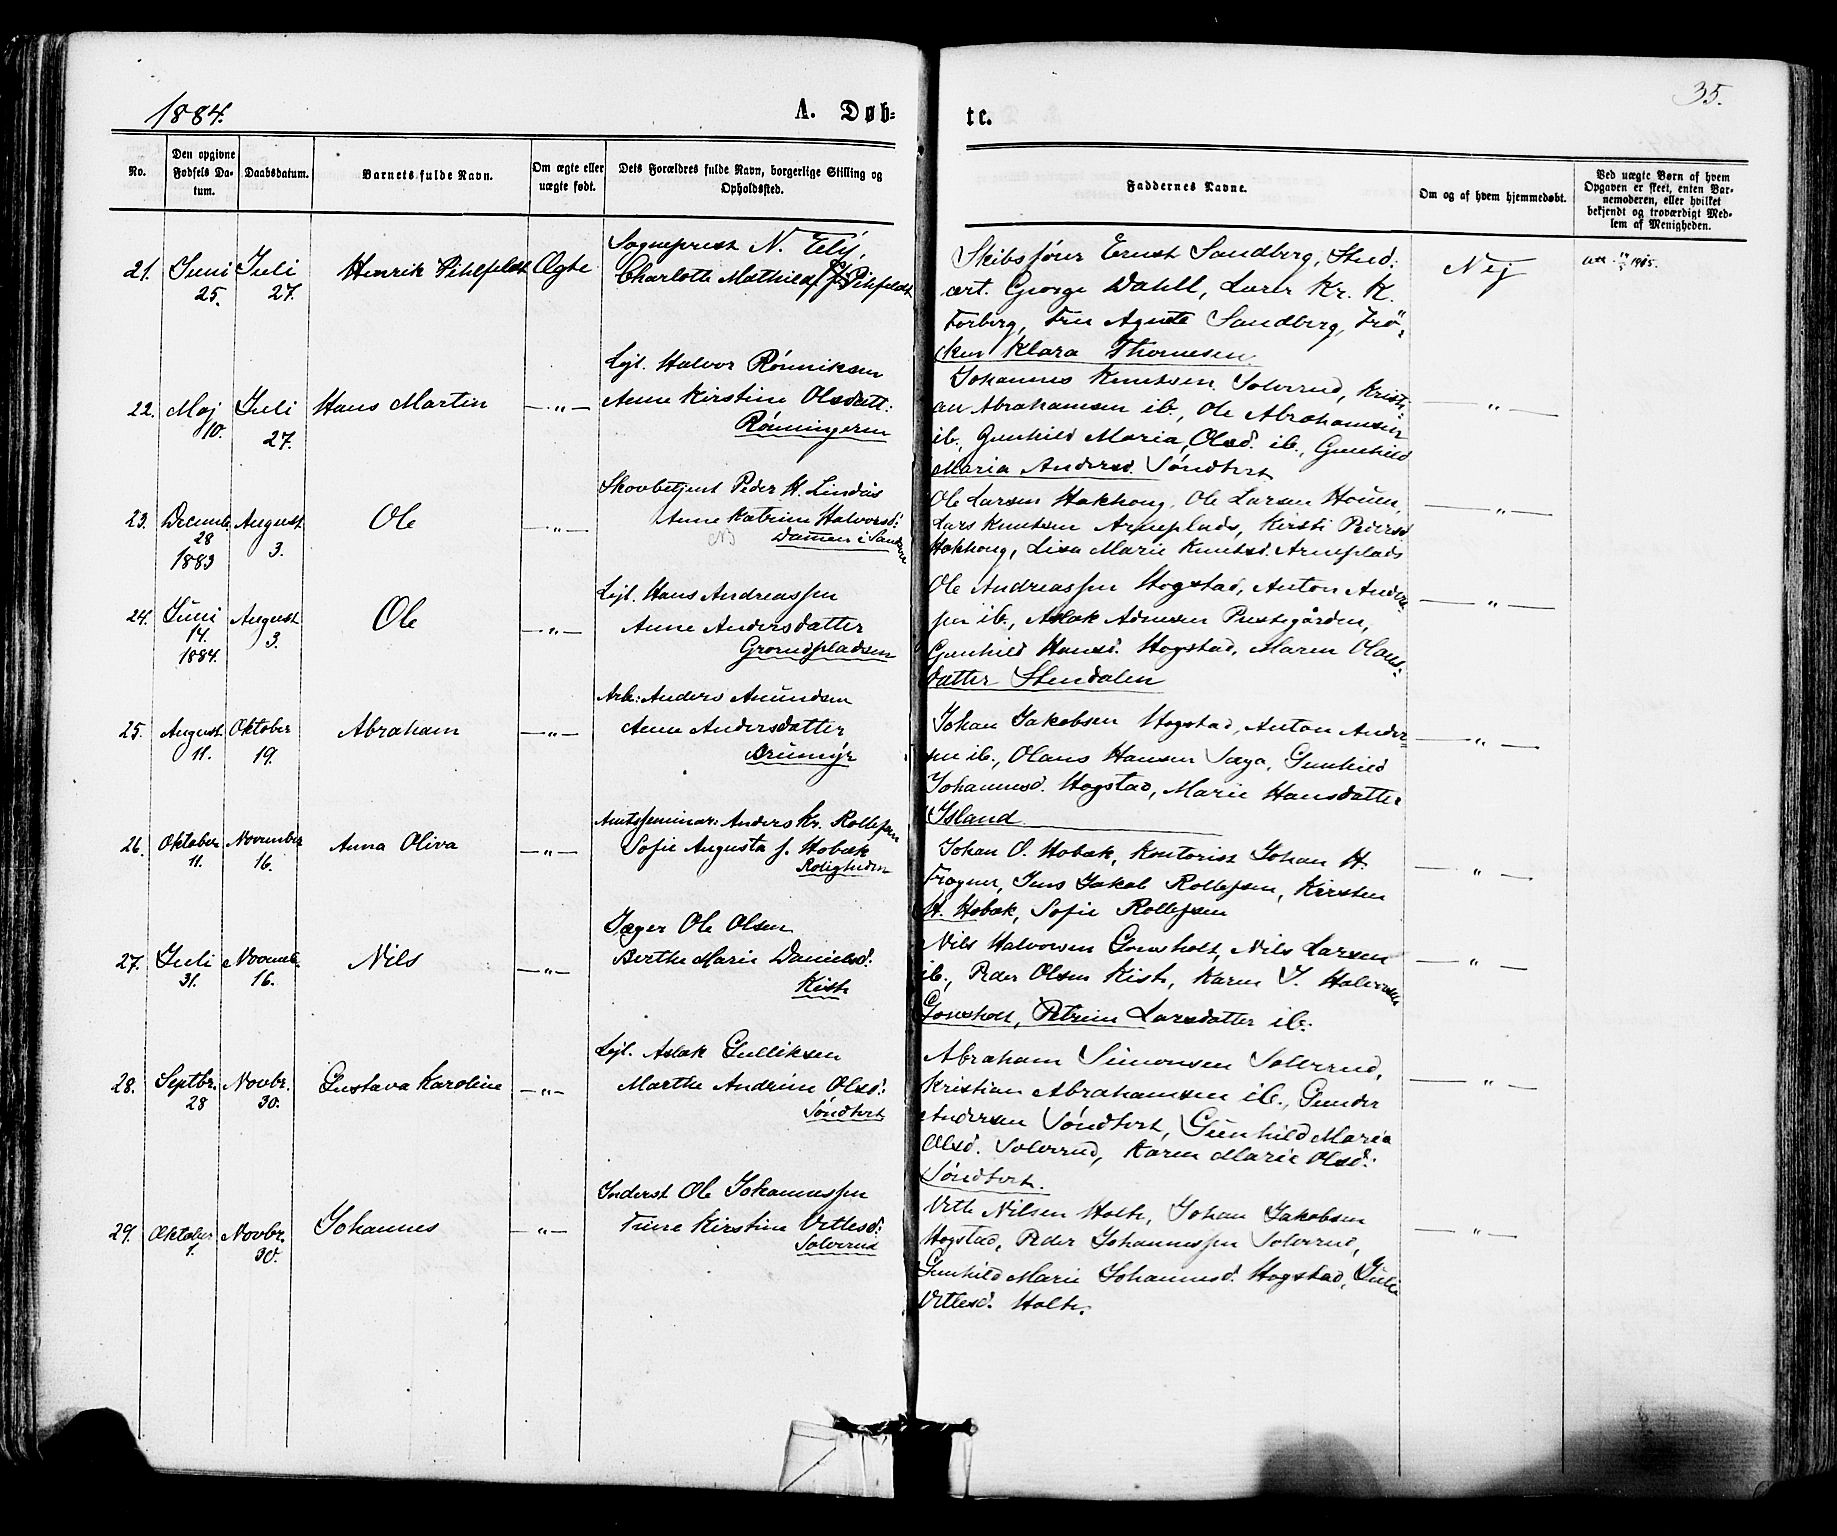 1884.
A. Døb-
te.
35.
No.
Den opgivne Fødsels Da-tum.
Daabsdatum.
Barnets fulde Navn.
Om ægte eller uægte født.
Dets Forældres fulde Navn, borgerlige Stilling og Opholdssted.
Faddernes Navne.
Om og af hvem hjemmedøbt.
Ved uægte Børn af hvem Opgaven er skeet, enten Bar-nemoderen, eller hvilket bekjendt og troværdigt Med-lem af Menigheden.
21. Juni 25. Juli 27. Henrik Pihlfeldt Ægte
Sogneprest N.
Charlotte Mathilde f. Pihlfeldt
Skibsfører Ernst Sandberg, Stud:
art. George Dahll, Lærer Kr. K.
Forberg, Fru Agnete Sandberg, Frø-
ken Klara Thomesen
Nej
1905.
22. Maj 10. Juli 27. Hans Martin —"—
Lejl. Halvor Rønniksen
Anne Kirstine Olsdatt:
Rønningeren
Johannes Knutsen Solverud, Kristi-
an Abrahamsen ib., Ole Abrahamsen
ib., Gunhild Maria Olsd. ib., Gunhild
Maria Andersd. Søndtvet
—"—
23. Decemb. 28 1883 August 3. Ole —"—
Skovbetjent Peder H. Lindås
Anne Katrine Halvorsd:
Dammen i
Ole Larsen Hakhong, Ole Larsen Houen,
Lars Knutsen Arneplads, Kirsti Pedersd
Hakhong, Lisa Marie Knutsd. Arneplads
—"—
24. Juni 14. 1884. August 3. Ole —"—
Lejl. Hans Andreassen
Anne Andersdatter
Gromdpladsen
Ole Andreassen Hogstad, Anton Ander-
sen ib., Aslak Adnesen Prestegården,
Gunhild Hansd. Hogstad, Maren Olans-
datter Stendalen
—"—
25. August 11. Oktober 19. Abraham —"—
Arb: Anders Amundsen
Anne Andersdatter
Brumyr
Johan Jakobsen Hogstad, Anton Ander-
sen ib., Olans Hansen Saga, Gunhild
Johannesd. Hogstad, Marie Hansdatter
Island
—"—
26. Oktober 11. November 16. Anna Oliva —"—
Amtsseminar: Anders Kr. Rollefsen
Sofie Augusta f. Hobæk
Roligheden
Johan O. Hobæk, Kontorist Johan H.
Frogner, Jens Jakob Rollefsen, Kirsten
H. Hobæk, Sofie Rollefsen
—"—
27. Juli 31. Novemb. 16. Nils —"—
Jæger Ole Olsen
Berthe Marie Danielsd:
Kiste
Nils Halvorsen Gonsholt, Nils Larsen
ib., Peder Olsen Kiste, Karen J. Halvorsen
Gonsholt, Petrine Larsdatter ib.
—"—
28. Septbr. 28 Novbr. 30. Gustava Karoline —"—
Lejl. Aslak Gulliksen
Marthe Andrine Olsd:
Søndtvet
Abraham Simonsen Solverud,
Kristian Abrahamsen ib., Gunder
Andersen Søndtvet, Gunhild Maria
Olsd. Solverud, Karen Marie Olsd:
Søndtvet.
—"—
29. Oktober 1. Novbr. 30. Johannes —"—
Inderst Ole Johannessen
Trine Kirstine Vetlesd:
Solverud
Vetle Nilsen Holte, Johan Jakobsen
Hogstad, Peder Johannessen Solverud,
Gunhild Marie Johannesd. Hogstad, Juli
Vetlesd. Holte.
—"—